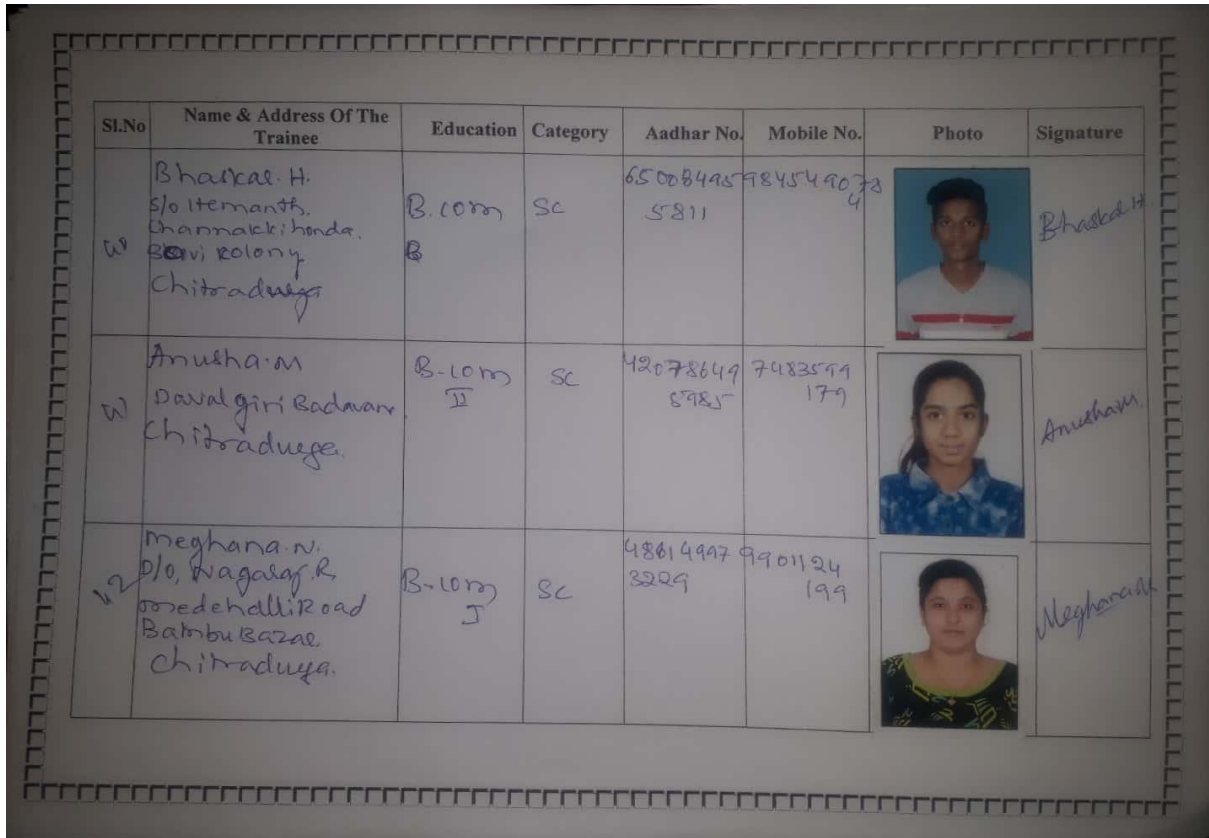 Sl.No Name & Address Of The Trainee Education Category Aadhar No. Mobile No. Photo Signature
Bhaskar. H.
S/o Hemanth.
Channakkihonda.
Bovi Kolony
Chitradurga
B.com
B
SC
65008495
5811
Bhaskar H
Anusha.M
Davalgiri Badavane
Chitradurga.
B-com
II
SC
42078649
5985
7483599
179
Anusha.M
42
Meghana.N.
D/o, Nagaraj.R
medehalli Road
Bambu Bazar.
Chitradurga.
B-com
I
SC
48614997
3229
9901124
199
Meghana.N